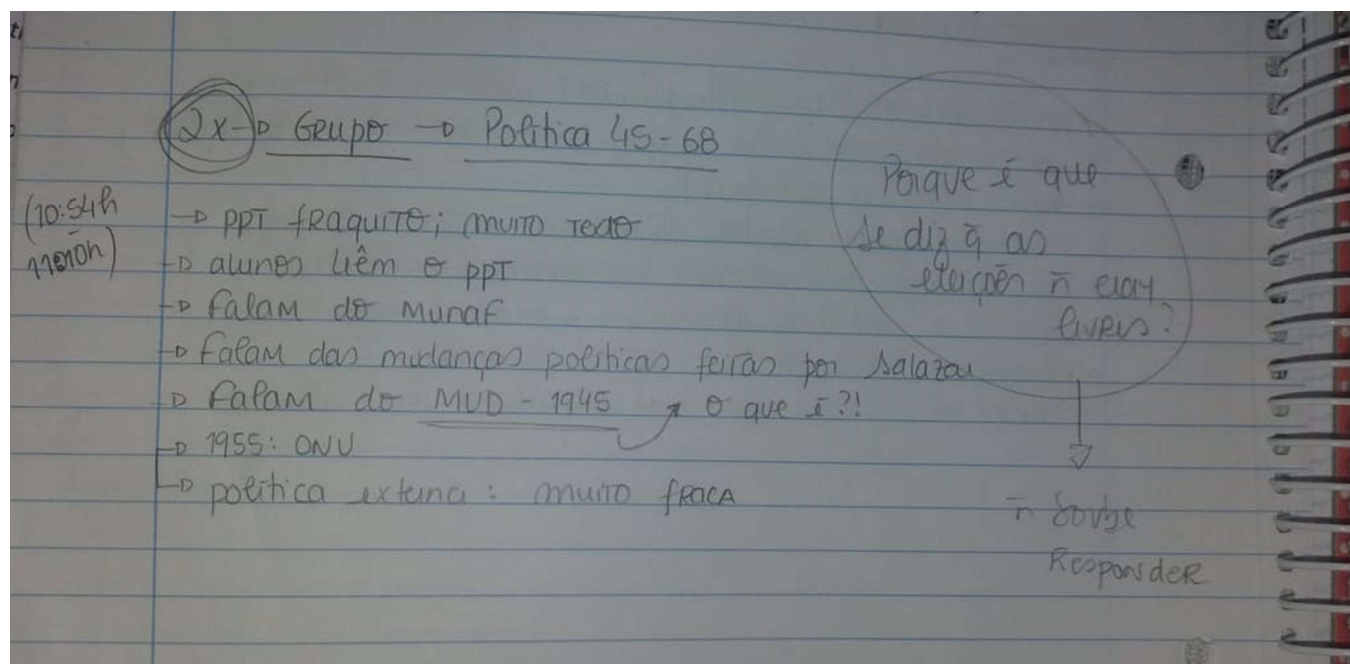 2x → Grupo → Politica 45-68
(10:54h
11h10h)
→ PPT fraquito; muito texto
→ alunos liêm o PPT
→ falam do Munaf
→ falam das mudanças politicas feitas por Salazar
→ falam do MUD - 1945 ↗ o que é?!
→ 1955: ONU
→ politica externa: muito fraca
Porque é que
se diz q̃ as
eleições ñ eram
livres?
ñ soube
Responder